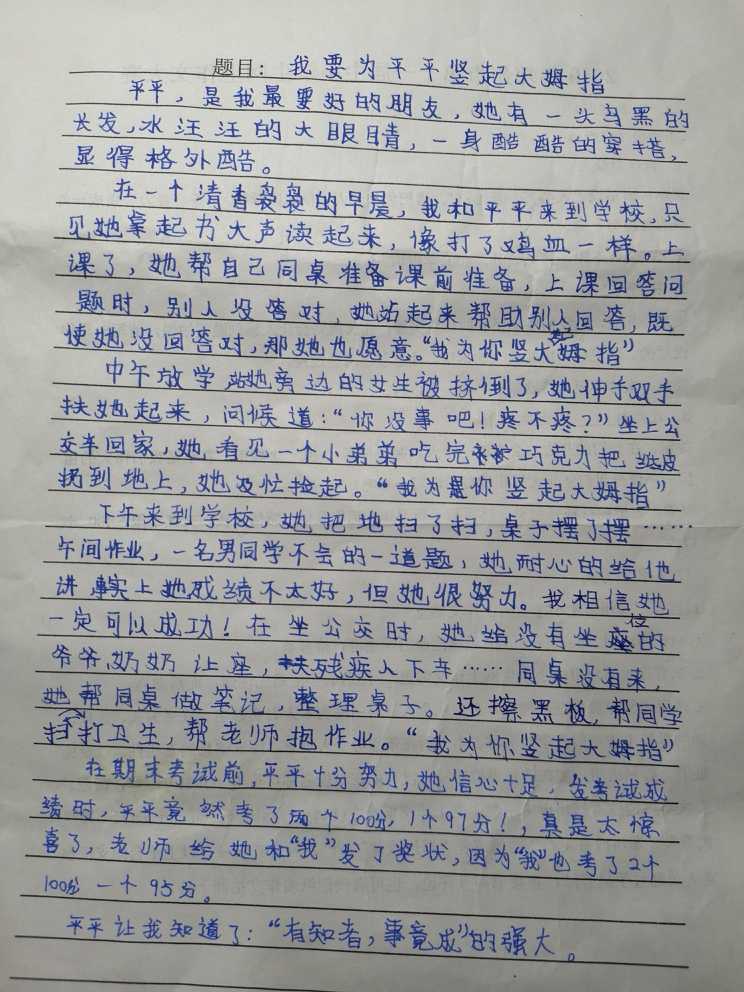 题目：我要为平平竖起大姆指
平平，是我最要好的朋友，她有一头乌黑的
长发，水汪汪的大眼睛，一身酷酷的穿搭，
显得格外酷。
在一个清香袅袅的早晨，我和平平来到学校，只
见她拿起书大声读起来，像打了鸡血一样。上
课了，她帮自己同桌准备课前准备，上课回答问
题时，别人没答对，她站起来帮助别人回答，既
使她没回答对，那她也愿意。“我为你竖起大姆指”
中午放学，站她旁边的女生被挤倒了，她伸手双手
扶她起来，问候道：“你没事吧！疼不疼？”坐上公
交车回家，她看见一个小弟弟吃完巧克力把纸皮
扔到地上，她及忙捡起。“我为你竖起大姆指”
下午来到学校，她把地扫了扫，桌子摆了摆……
午间作业，一名男同学不会的一道题，她耐心的给他
讲，事实上她成绩不太好，但她很努力。我相信她
一定可以成功！在坐公交时，她给没有坐位的
爷爷奶奶让座，扶残疾人下车……同桌没有来，
她帮同桌做笔记，整理桌子。还擦黑板，帮同学
打扫卫生，帮老师抱作业。“我为你竖起大姆指”
在期末考试前，平平十分努力，她信心十足，发考试成
绩时，平平竟然考了两个100分，1个97分！，真是太惊
喜了，老师给她和“我”发了奖状，因为“我”也考了2个
100分一个95分。
平平让我知道了：“有知者，事竟成”的强大。